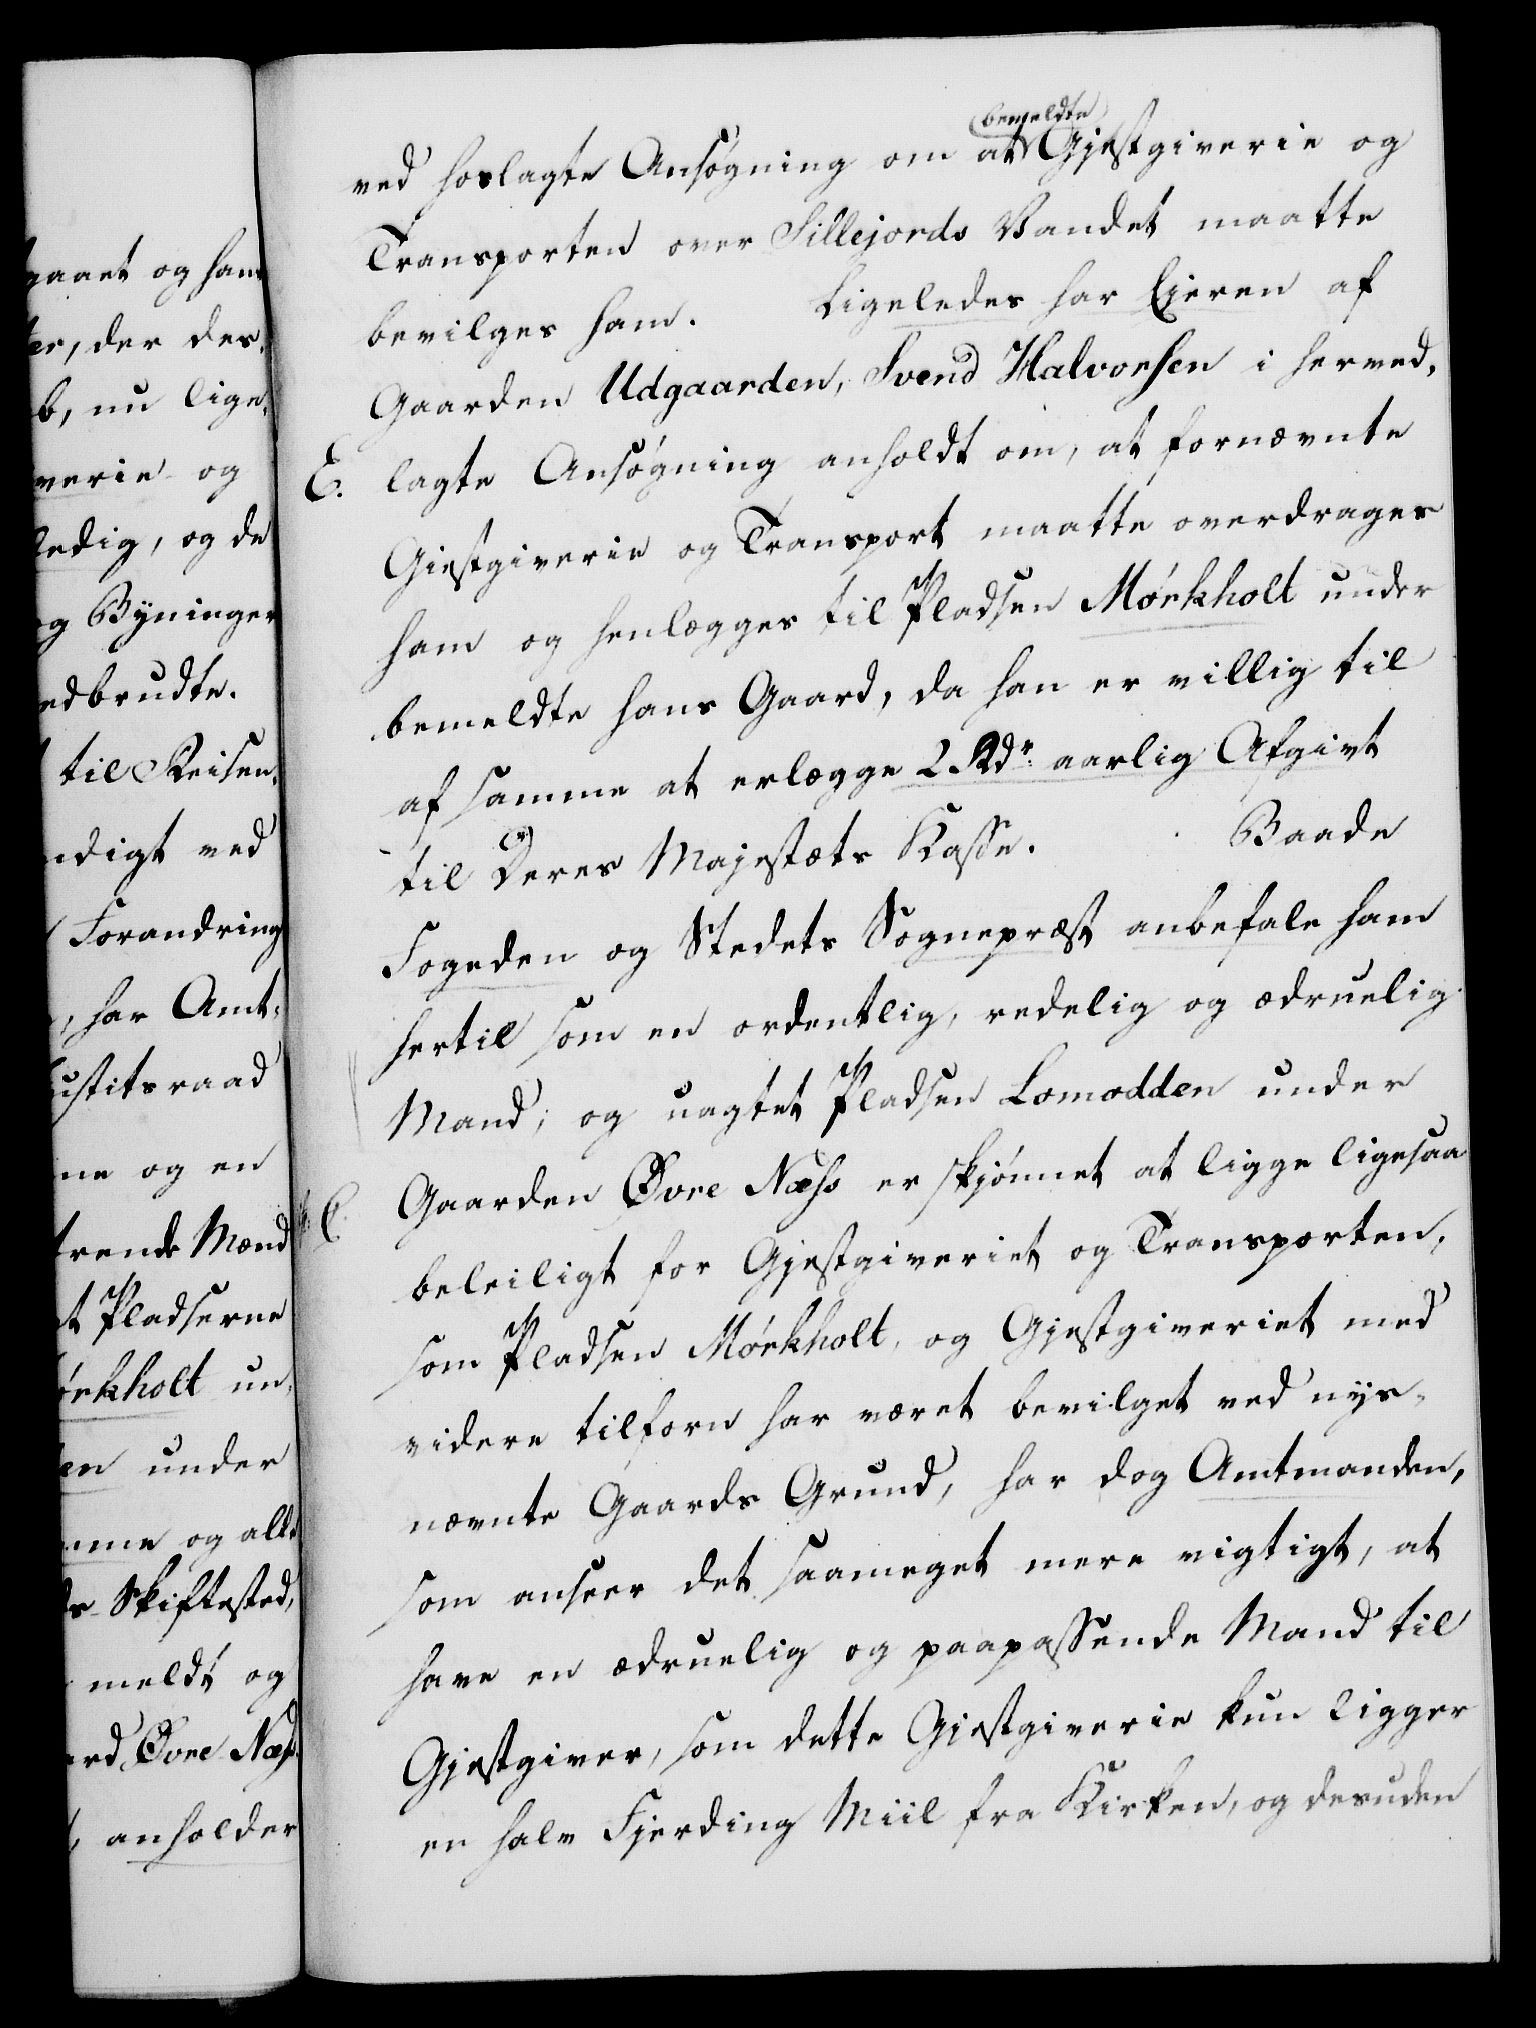 gaaet og hans
ter, der des-
b, nu lige-
verie og
ledig, og de
og Byninger
nedbrudte.
til Reisen-
ndigt ved
Forandring
, har Amt-
Justitsraad
ne og en
trende Mænd
at Pladserne
Mörkholt un-
en under
mme og alt
Skiftested,
meldt og
ard Øvre Næss
, anholder
bemeldte
ved hoslagte Ansøgning om at Gjestgiverie og
Transporten over Sillejords Vandet maatte
bevilges ham. Ligeledes har Ejeren af
Gaarden Udgaarden, Svend Halvorsen i herved-
E. lagte Ansøgning anholdt om, at fornævnte
Giestgiverie og Transport maatte overdrages
ham og henlægges til Pladsen Mörkholt under
bemeldte hans Gaard, da han er villig til
af samme at erlægge 2 Rdr. aarlig Afgivt
til Deres Majestæts Kasse. Baade
Fogeden og Stedets Sognepræst anbefale ham
hertil som en ordentlig, redelig og ædruelig
Mand; og uagtet Pladsen Lomodden under
C. Gaarden Øvre Næss er skjönnet at ligge ligesaa
beleiligt for Gjestgiveriet og Transporten,
som Pladsen Mörkholt, og Gjestgiveriet med
videre tilforn har været bevilget ved nys-
nævnte Gaards Grund, har dog Amtmanden,
som anseer det saameget mere vigtigt, at
have en ædruelig og paapassende Mand til
Gjestgiver, som dette Gjestgiverie kun ligger
en halv Fjerding Miil fra Kirken, og desuden